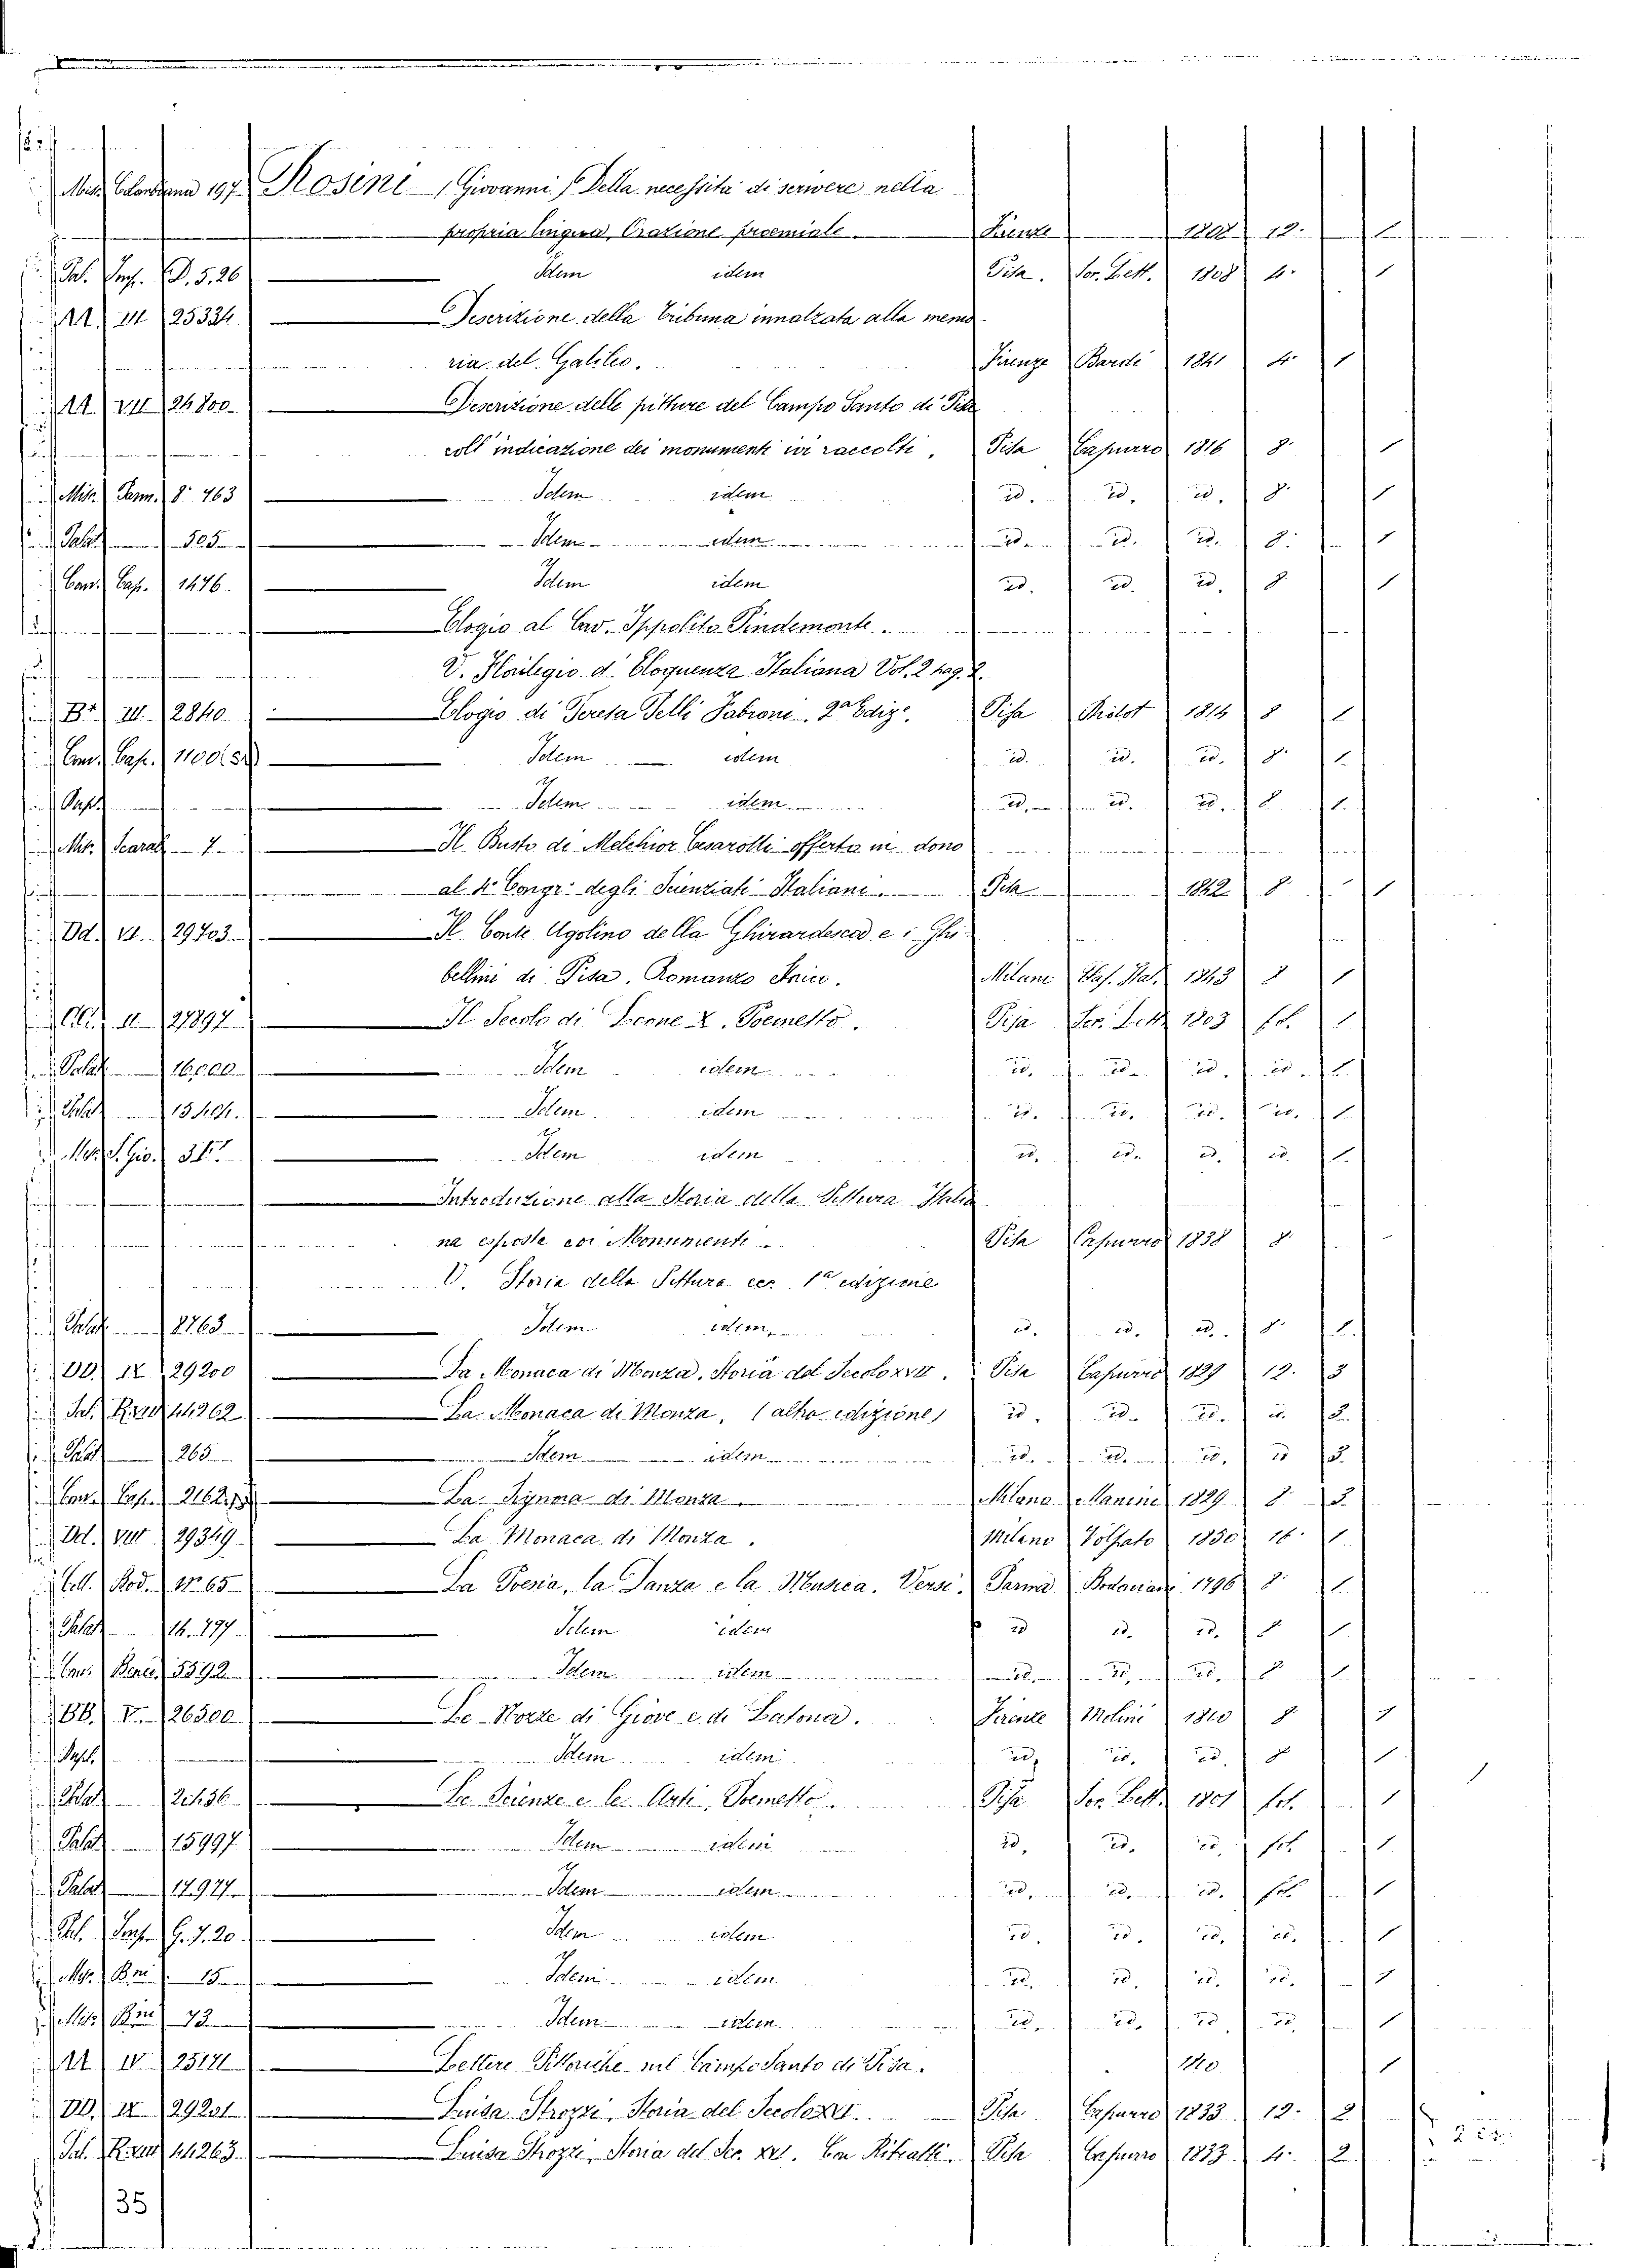 Rosini (Giovanni) Della necessità di scrivere nella
propria lingua, Orazione proemiale. Firenze 1808 12. 1
Pal. D. 5. 26 Idem idem Pisa. Soc. Lett. 1808 4. 1
AA. III 25334 Descrizione della Tribuna innalzata alla memo
ria del Galileo. Firenze Bardi 1841 4. 1
AA. VII 24800. Descrizione delle pitture del Campo Santo di Pisa
coll' indicazione dei monumenti ivi raccolti. Pisa Capurro 1816 8. 1
Mis. Penn. 8. 463 Idem idem id. id. id. 8. 1
Palat. 505 Idem idem id. id. id. 8. 1
Con. Cap. 1476. Idem idem id. id. id. 8. 1
Elogio al Cav. Ippolito Pindemonte.
V. Florilegio d'Eloquenza Italiana Vol. 2 pag. 2.
III 2840. Elogio di Teresa Pelli Fabroni. 2a Edize. Pisa Didot 1814 8. 1
Con. Cap. 1100 Idem idem id. id. id. 8. 1
Idem idem id. id. id. 8. 1
Mis. Scaraf. 7. Il Busto di Melchior Cesarotti offerto in dono
al 4o Congr. degli Scienziati Italiani. Pisa 1842 8. 1
Dd. VI. 29703 Il Conte Ugolino della Ghirardesca e i Ghi
bellini di Pisa. Romanzo Storico. Milano 1843 8 1
II 27897 Il Secolo di Leone X. Poemetto. Pisa Soc. Lett. 1803 fol. 1
Palat. 16.000 Idem idem id. id. id. id. 1
Palat. Idem idem id. id. id. id. 1
Idem idem id. id. id. id. 1
Introduzione alla Storia della Pittura Italia
na esposta coi Monumenti. Pisa Capurro 1838 8.
V. Storia della Pittura ecc. 1a edizione
Palat. 8763 Idem idem, id. id. id. 8. 1.
DD. IX 29200 La Monaca di Monza, Storia del Secolo XVII. Pisa Capurro 1829 12. 3
44262 La Monaca di Monza, (altra edizione) id. id. id. id. 3.
Palat. 265 Idem idem id. id. id. id 3.
Con. Cap. 2162 La Signora di Monza Milano Manini 1829 8 3.
Dd. VIII 29349 La Monaca di Monza. Milano Volpato 1850 16. 1.
Coll. Bod. No. 65 La Poesia, la Danza e la Musica. Versi. Parma Bodoniani 1796 8. 1.
Palat. 14. 797 Idem idem id id. id. 8 1
5592 Idem idem id. id. id. 8 1.
BB. V. 26500 Le Nozze di Giove e di Latona. Firenze Molini 1810 8. 1
Idem idem id. id. id. 8 1
Palat. Le Scienze e le Arti, Poemetto. Pisa Soc. Lett. 1801 fol. 1
Palat. 15997 Idem idem id. id. id. fol 1
Palat. 17977 Idem idem id. id. id. fol 1
Pal. G. 7. 20. Idem idem id. id. id. id. 1
15 Idem idem id. id. id. id. 1
73 Idem idem id. id. id id. 1
AA IV. 25171 Lettere Pittoriche sul Campo Santo di Pisa. 1810 1
DD. IX 29201 Luisa Strozzi, Storia del Secolo XVI. Pisa Capurro 1833 12. 2
44263 Luisa Strozzi, Storia del Sec. XVI. Con Ritratti. Pisa Capurro 1833 4. 2.
35